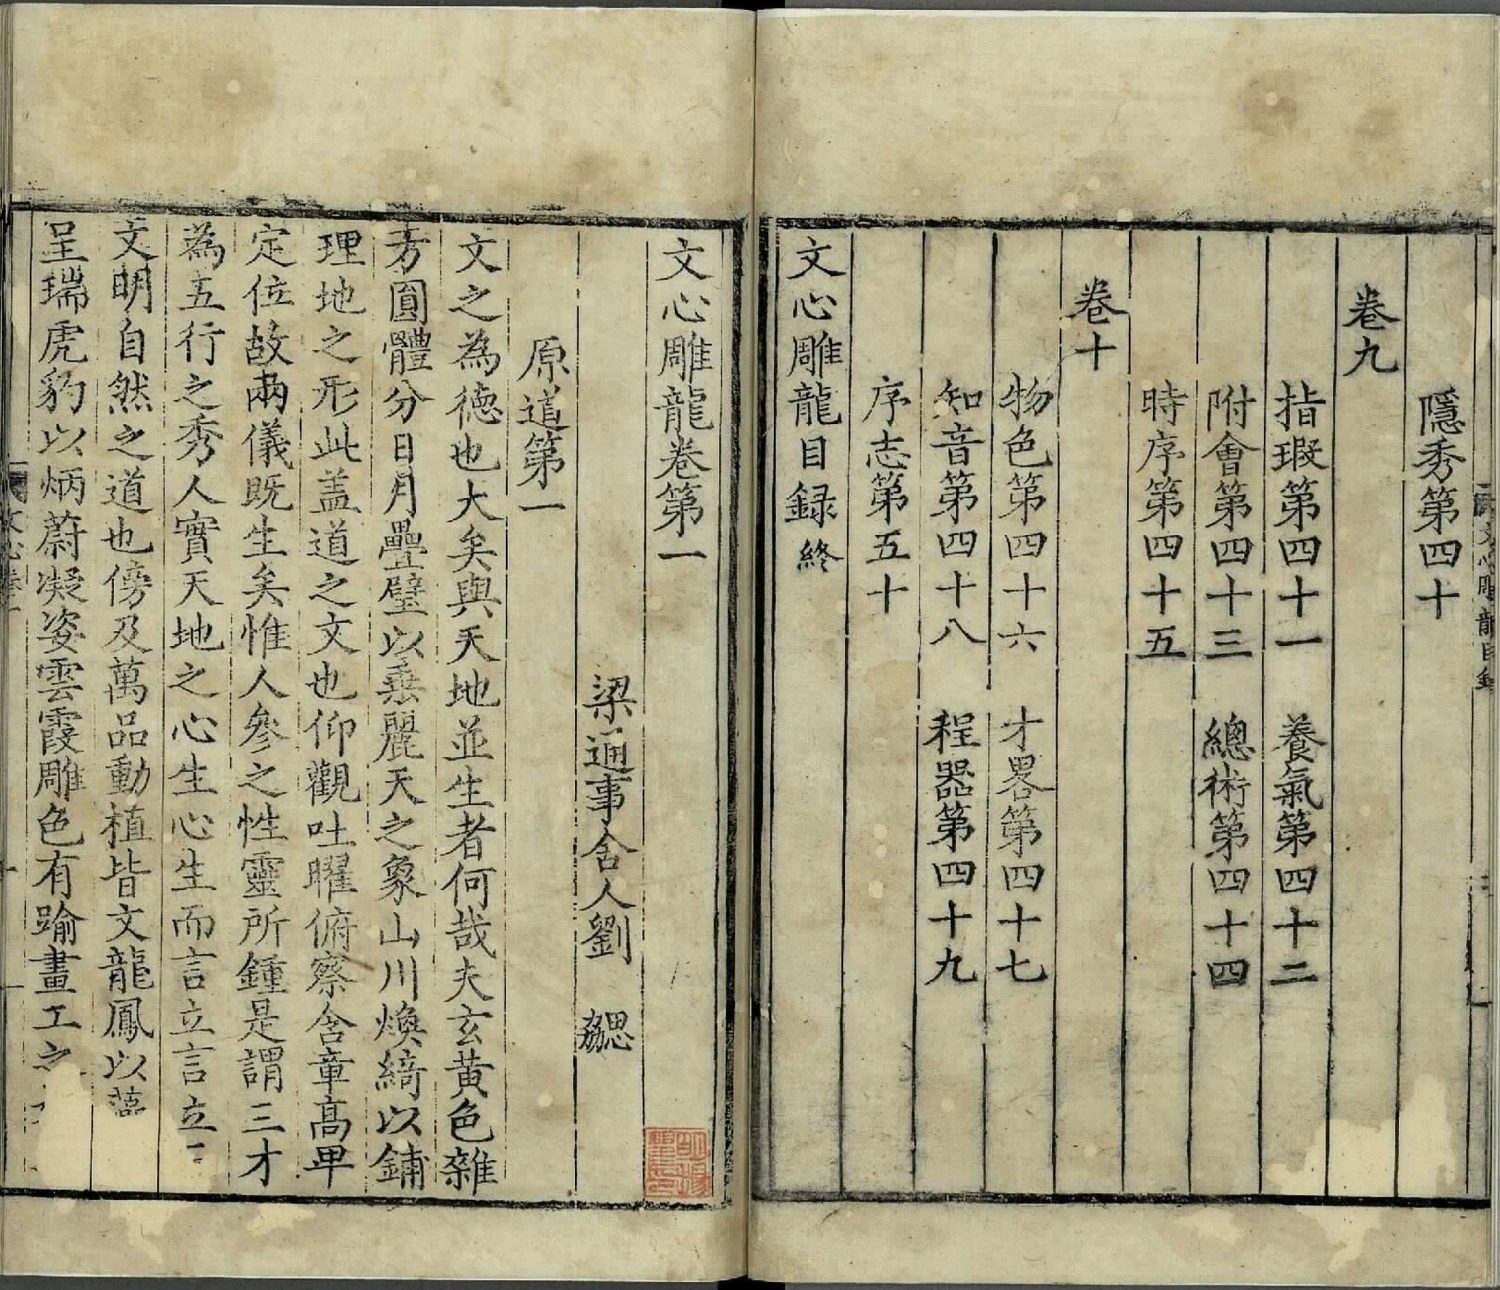 隱秀第四十
卷九
指瑕第四十一 養氣第四十二
附會第四十三 總術第四十四
時序第四十五
卷十
物色第四十六 才畧第四十七
知音第四十八 程器第四十九
序志第五十
文心雕龍目録終
文心雕龍卷第一
梁通事舍人劉 勰
原道第一
文之為德也大矣與天地並生者何哉夫玄黄色雜
方圓體分日月疊璧以垂麗天之象山川煥綺以鋪
理地之形此盖道之文也仰觀吐曜俯察含章高卑
定位故兩儀既生矣惟人參之性靈所鍾是謂三才
為五行之秀人實天地之心生心生而言立言立
文明自然之道也傍及萬品動植皆文龍鳳以藻
呈瑞虎豹以炳蔚凝姿雲霞雕色有踰畫工之